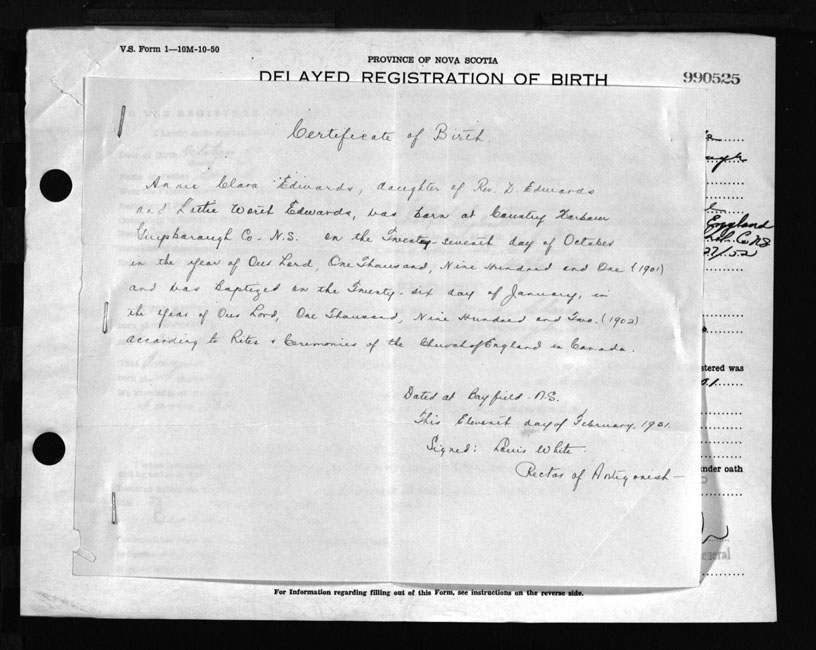 V.S. Form 1—10M-10-50
PROVINCE OF NOVA SCOTIA
DELAYED REGISTRATION OF BIRTH
990525
Certificate of Birth.
Annie Clara Edwards, daughter of Rev. D. Edwards
and Lettie Edwards, was born at Country Harbour
Guysbaraugh Co. N.S. on the Twenty-seventh day of October
in the year of Our Lord, One Thousand, Nine Hundred and One (1901)
and was Baptized on the Twenty-six day of January, in
the year of Our Lord, One Thousand, Nine Hundred and Two. (1902)
according to Rites & Ceremonies of the Church of England in Canada.
Dated at Bayfield. N.S.
This Eleventh day of February, 1921.
Signed: Louis White.
Rector of Antigonish
England
Co NS
27/52
stered was
01
nder oath
neral
For Information regarding filling out of this Form, see instructions on the reverse side.